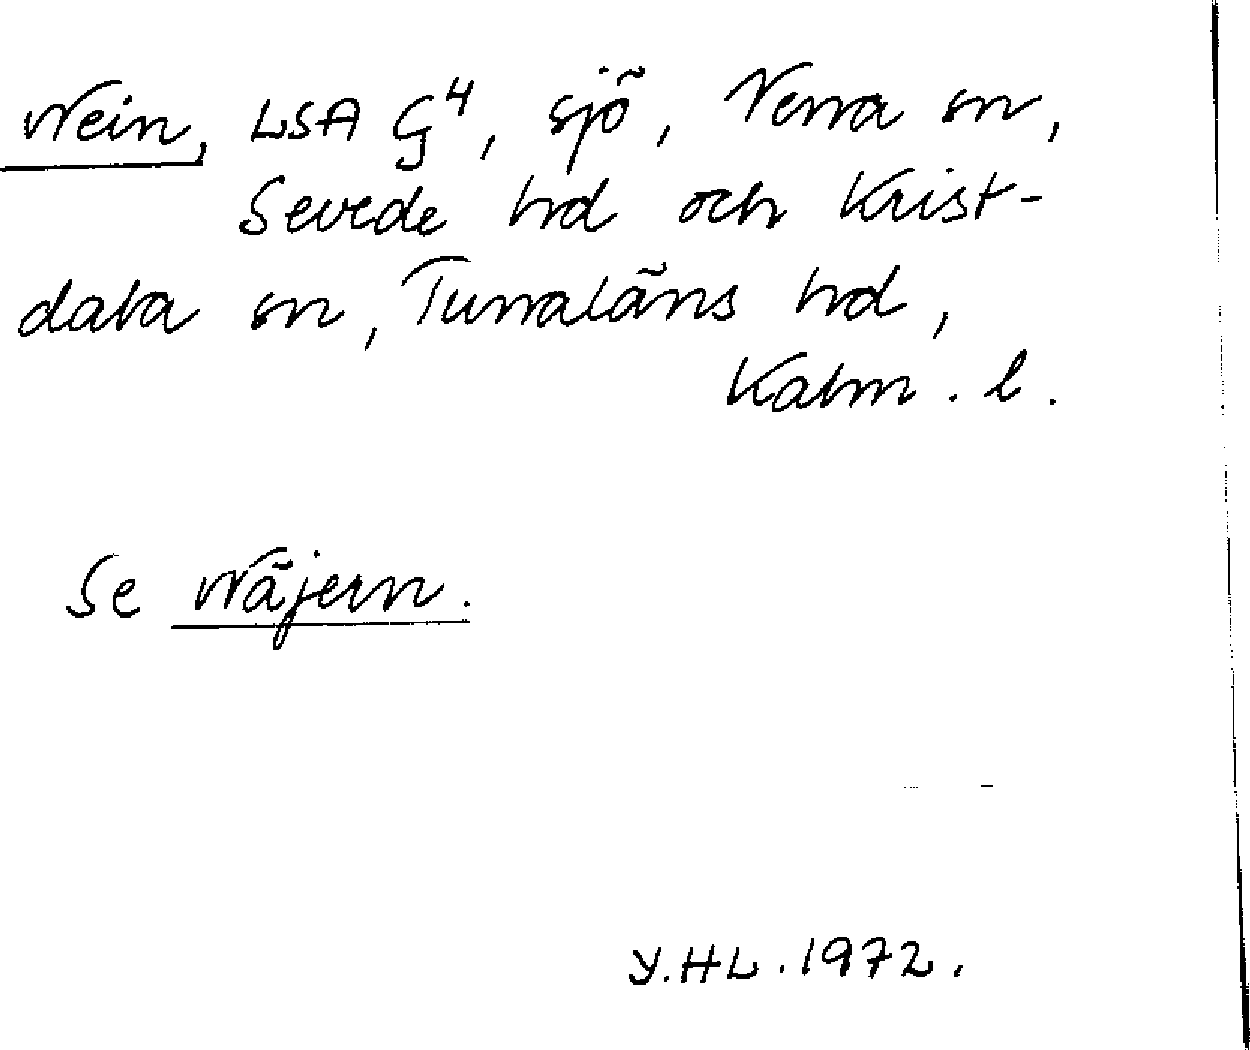 Wein, LSA G4, sjö, Vena sn,
Sevede hd och Krist-
dala sn, Tunaläns hd,
Kalm. l.
Se Wäjern.
Y.HL.1972.